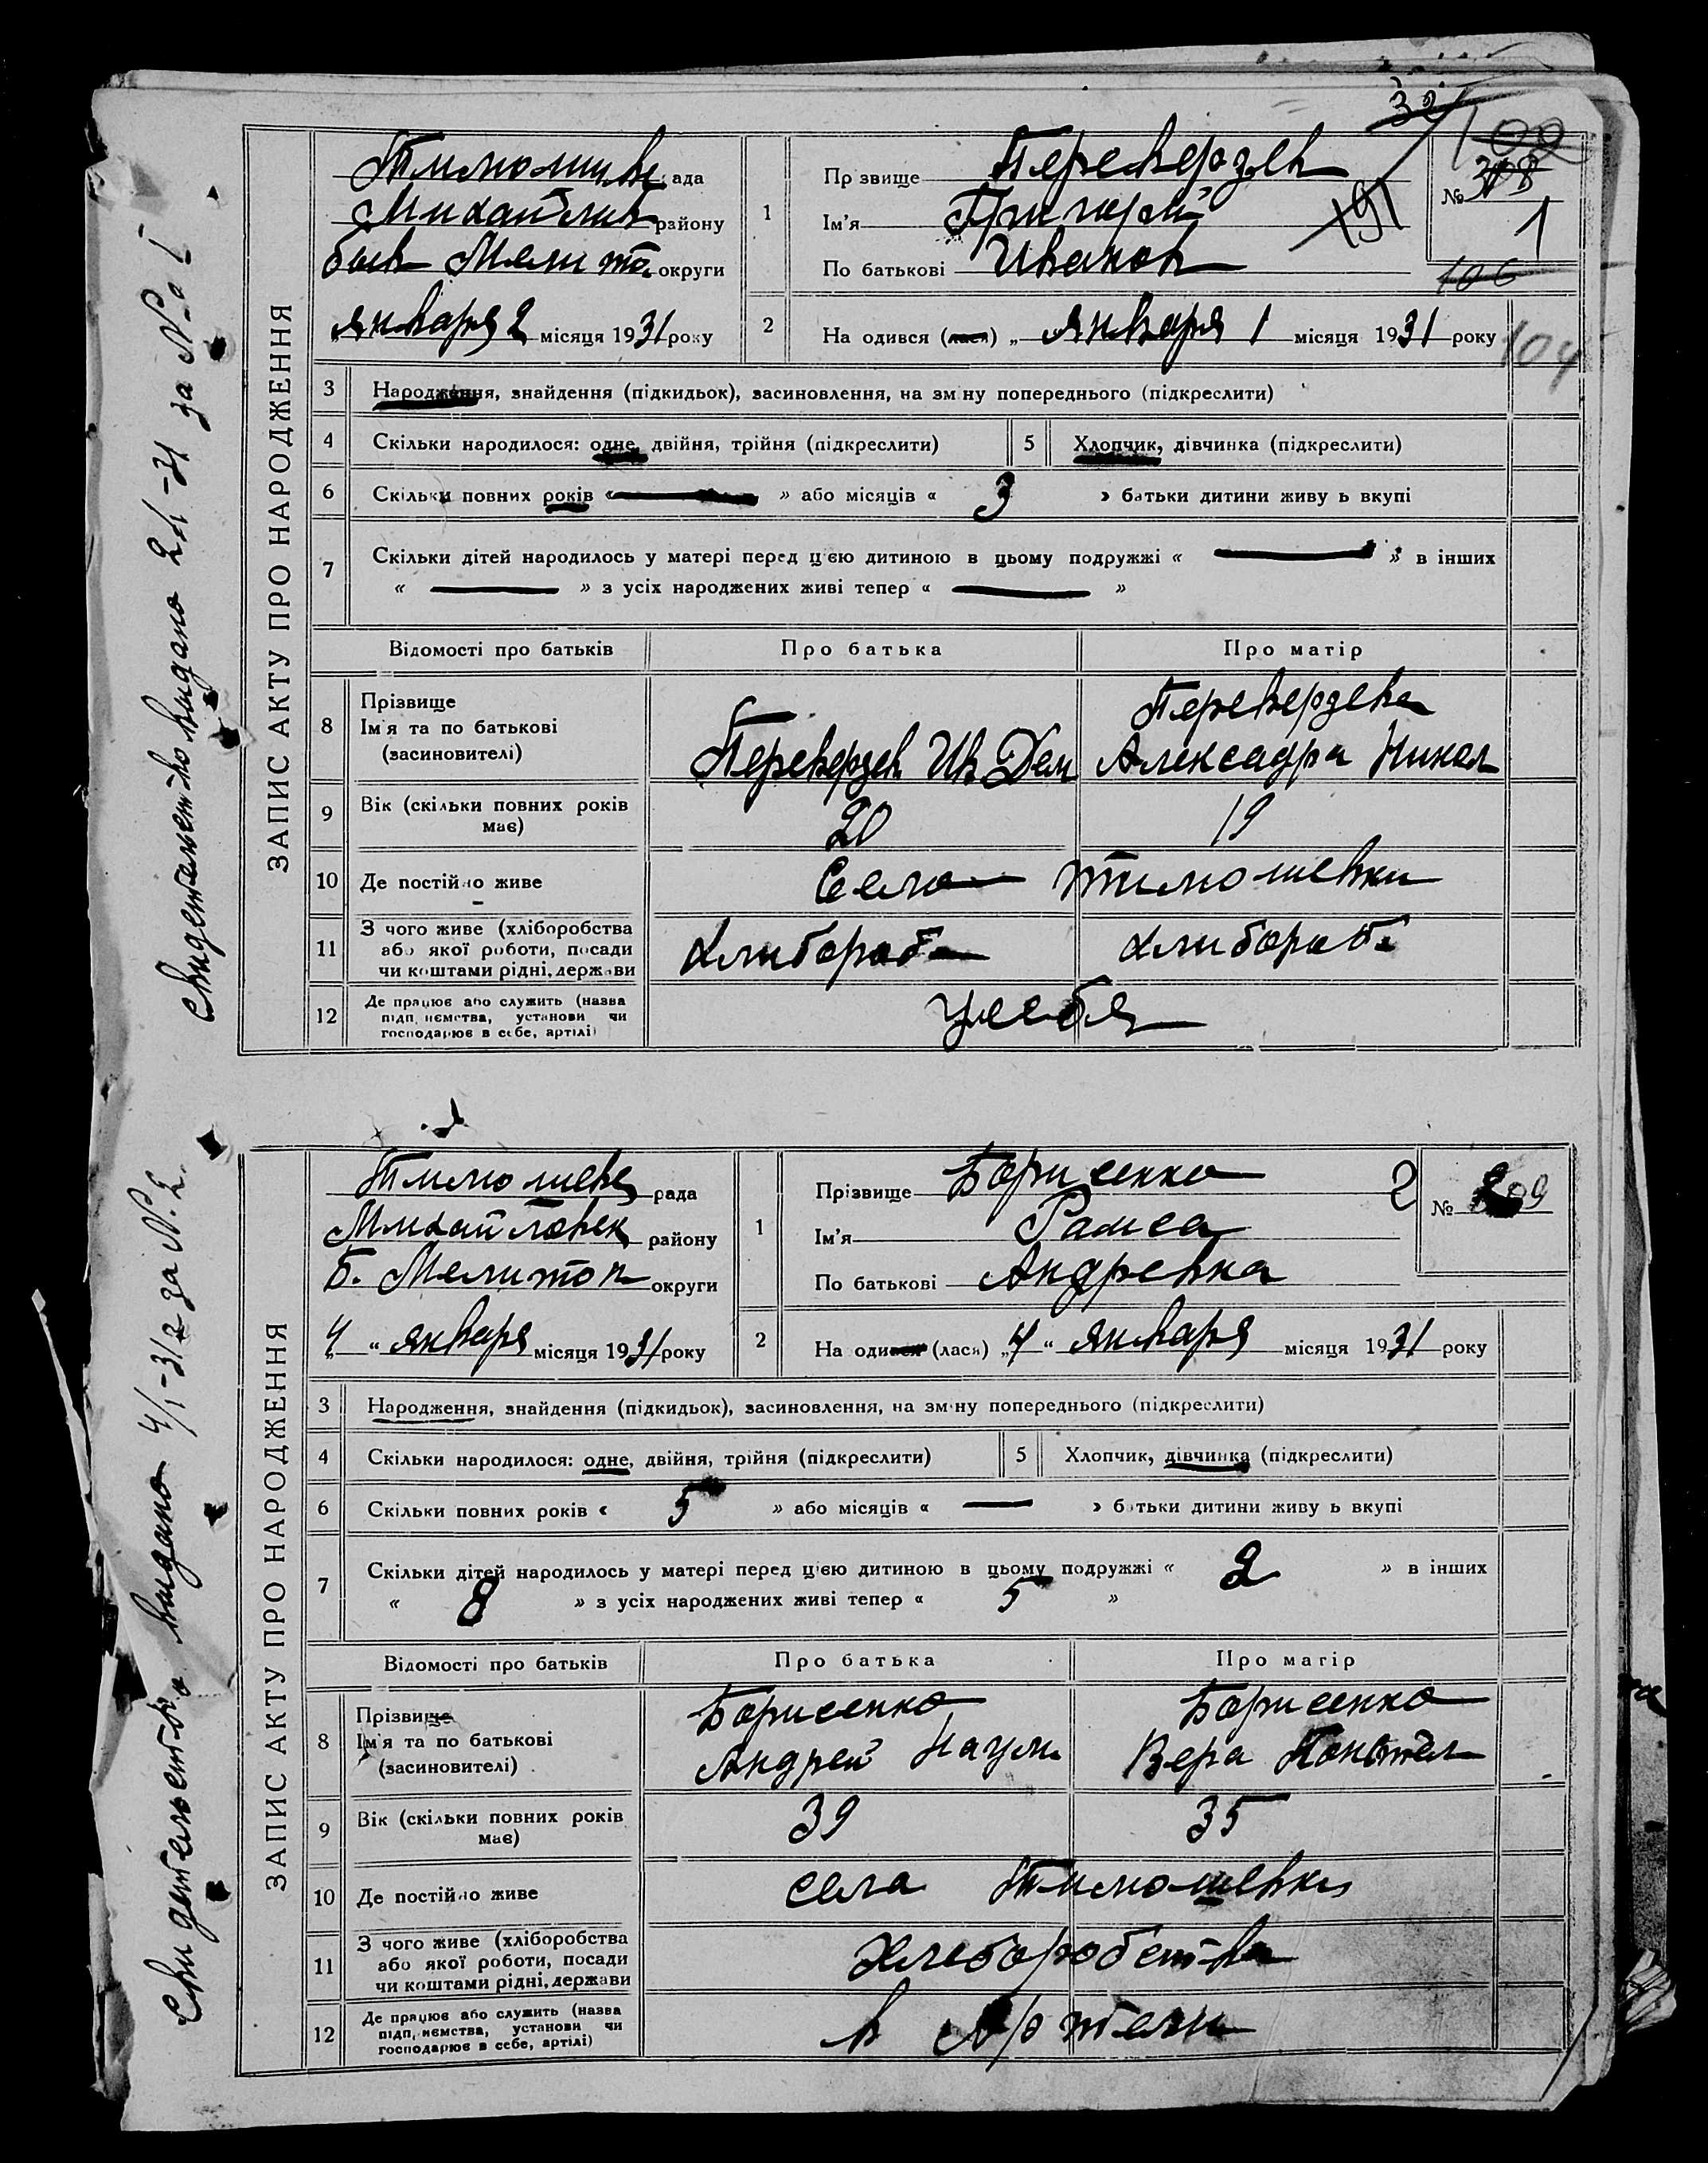 32
100
Тимошивс ада
Михайлив району
бывш Мелито округи
января 2 місяця 1931 року
1
Пр звище Переверзев
Ім'я Григорий
По батькові Иванов
191
№ 308
1
106
2
На одився (лася) „ января 1 місяця 1931 року
104
ЗАПИС АКТУ ПРО НАРОДЖЕННЯ
3 Народження, знайдення (підкидьок), засиновлення, на зм ну попереднього (підкреслити)
4 Скільки народилося: одне, двійня, трійня (підкреслити) 5 Хлопчик, дівчинка (підкреслити)
6 Скільки повних років « » або місяців « 3 » батьки дитини живу ь вкупі
7 Скільки дітей народилось у матері перед цією дитиною в цьому подружжі « — » в інших
« — » з усіх народжених живі тепер « — »
Відомості про батьків Про батька Про матір
8 Прізвище
Ім'я та по батькові
(засновителі)
Переверзев Ив Дем
Переверзева
Александра Никол
9 Вік (скільки повних років
має)
20 19
10 Де постійно живе Село Тимошевки
11 З чого живе (хліборобства
або якої роботи, посади
чи коштами рідні, держави
хлибороб хлибороб.
12 Де працює або служить (назва
підп иємства, установи чи
господарює в себе, артілі)
у себя
Свидетельство выдано 2/I-31 за №а 1
Тимошевс рада
Михайловск району
Б. Мелитоп округи
4 " января місяця 1931 року
1
Прізвище Борисенко
Ім'я Раиса
По батькові Андревна
2
№ 209
2
На одився (лася) „4" января місяця 1931 року
ЗАПИС АКТУ ПРО НАРОДЖЕННЯ
3 Народження, знайдення (підкидьок), засиновлення, на зм ну попереднього (підкреслити)
4 Скільки народилося: одне, двійня, трійня (підкреслити) 5 Хлопчик, дівчинка (підкреслити)
6 Скільки повних років « 5 » або місяців « — » батьки дитини живу ь вкупі
7 Скільки дітей народилось у матері перед цією дитиною в цьому подружжі « 2 » в інших
« 8 » з усіх народжених живі тепер « 5 »
Відомості про батьків Про батька Про матір
8 Прізвище
Ім'я та по батькові
(засиновителі)
Борисенко
Андрей Наум.
Борисенко
Вера
9 Вік (скільки повних років
має)
39 35
10 Де постійно живе села Тимошевки
11 З чого живе (хліборобства
або якої роботи, посади
чи коштами рідні, держави
Хлеборобства
12 Де працює або служить (назва
підп, иємства, установи чи
господарює в себе, артілі)
в Артели
Свидетельство выдано 4/I-31г за №. 2.